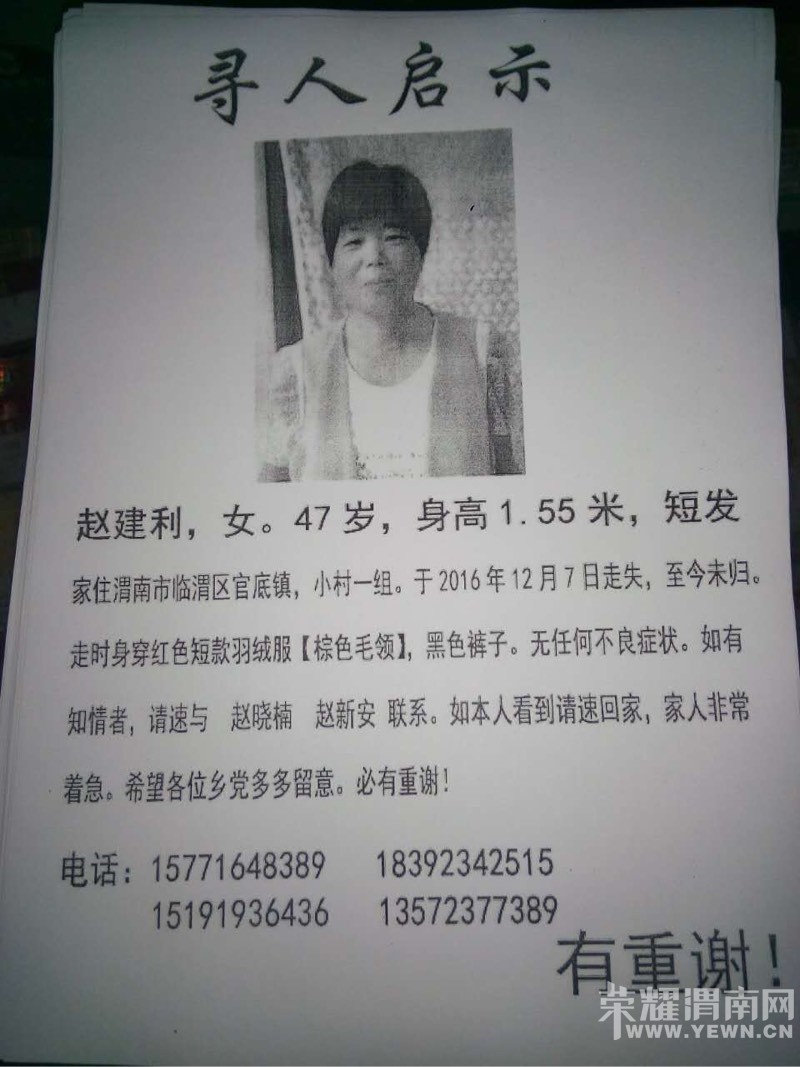 寻人启示
赵建利，女。47岁，身高1.55米，短发
家住渭南市临渭区官底镇，小村一组。于2016年12月7日走失，至今未归。
走时身穿红色短款羽绒服【棕色毛领】，黑色裤子。无任何不良症状。如有
知情者，请速与 赵晓楠 赵新安 联系。如本人看到请速回家，家人非常
着急。希望各位乡党多多留意。必有重谢！
电话：15771648389 18392342515
15191936436 13572377389
有重谢！
荣耀渭南网
WWW.YEWN.CN